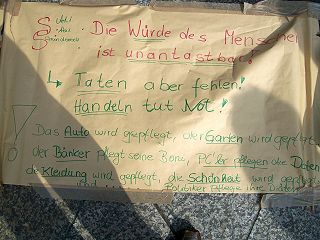 § Die Würde des Menschen
ist unantastbar!
↳ Taten aber fehlen!
Handeln tut Not!
! Das Auto wird gepflegt, der Garten wird gepflegt
der Bänker pflegt seine Boni, PC'ler pflegen die Daten
die Kleidung wird gepflegt, die Schönheit wird gepflegt
Politiker pflegen ihre